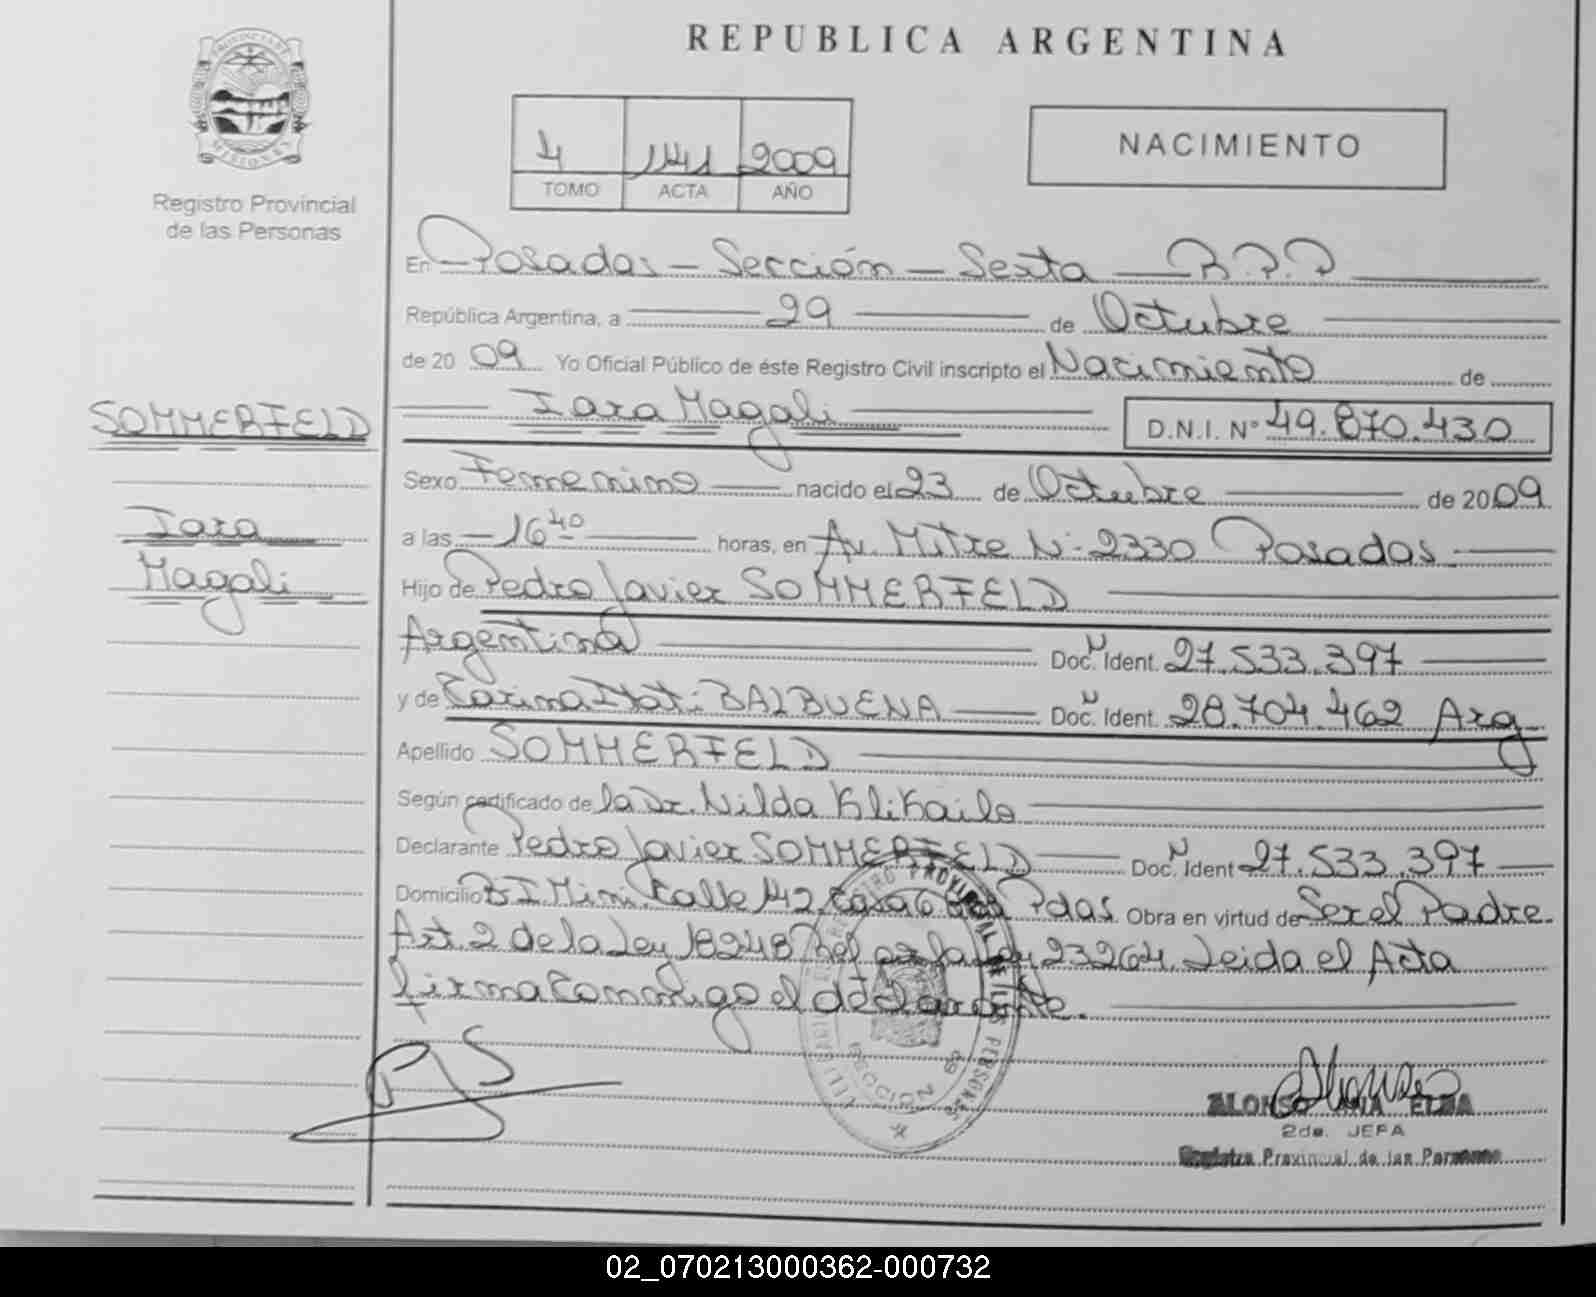 REPUBLICA ARGENTINA
PROVINCIA DE
MISIONES
Registro Provincial
de las Personas
4 1141 2009
TOMO ACTA AÑO
NACIMIENTO
En Posadas - Sección - Sexta R.P.P
República Argentina, a 29 de Octubre
de 20 09 Yo Oficial Público de éste Registro Civil inscripto el Nacimiento de
Iara Magali D.N.I. N° 49.870.430
SOMMERFELD
Iara
Magali
Sexo Femenino nacido el 23 de Octubre de 2009
a las 16 40 horas, en Av. Mitre N: 2330 Posadas
Hijo de Pedro Javier SOMMERFELD
Argentina Doc. Ident. 27.533.397
y de Carina Itatí BALBUENA Doc. Ident. 28.704.462 Arg
Apellido SOMMERFELD
Según certificado de la Dr. Nilda Klikailo
Declarante Pedro Javier SOMMERFELD Doc. Ident 27.533.397
Domicilio Bº I. Mini. Calle 142 Casa 6 Pdas Obra en virtud de Ser el Padre.
Art. 2 de la Ley 18248 Ley 23264. Leida el Acta
firma Conmigo el declarante.
REGISTRO PROVINCIAL DE LAS PERSONAS
SECCION 6ª
ALONSO ANA ELBA
2da. JEFA
Registro Provincial de las Personas
02_070213000362-000732